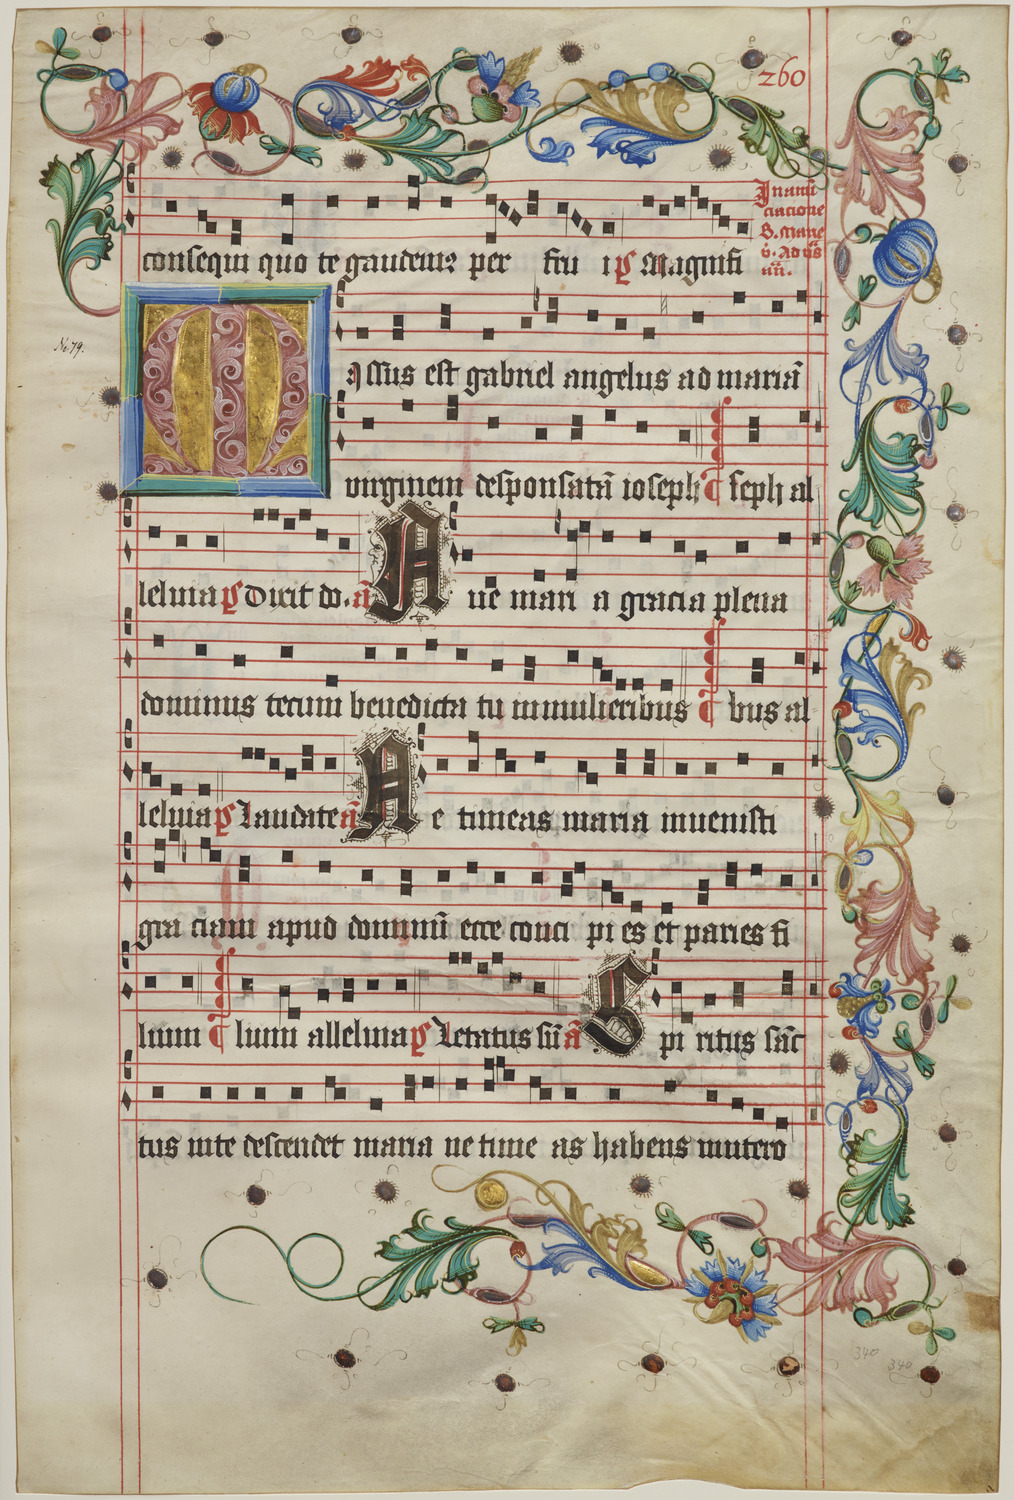 260
In anun
ciacione
B. Marie
v. Ad vs
consequi quo te gaudemus per fru i p̄s Magnifi
No. 79.
Missus est gabriel angelus ad mariā
virginem desponsatā ioseph seph al
leluia p̄s Dixit do. ā Aue mari a gracia plena
dominus tecum benedicta tu in mulieribus bus al
leluia p̄s Laudate ā Ne timeas maria inuenisti
gra ciam apud dominū ecce conci pi es et paries fi
lium lium alleluia p̄s Letatus sū ā Spi ritus sāc
tus in te descendet maria ne time as habens in utero
340
340